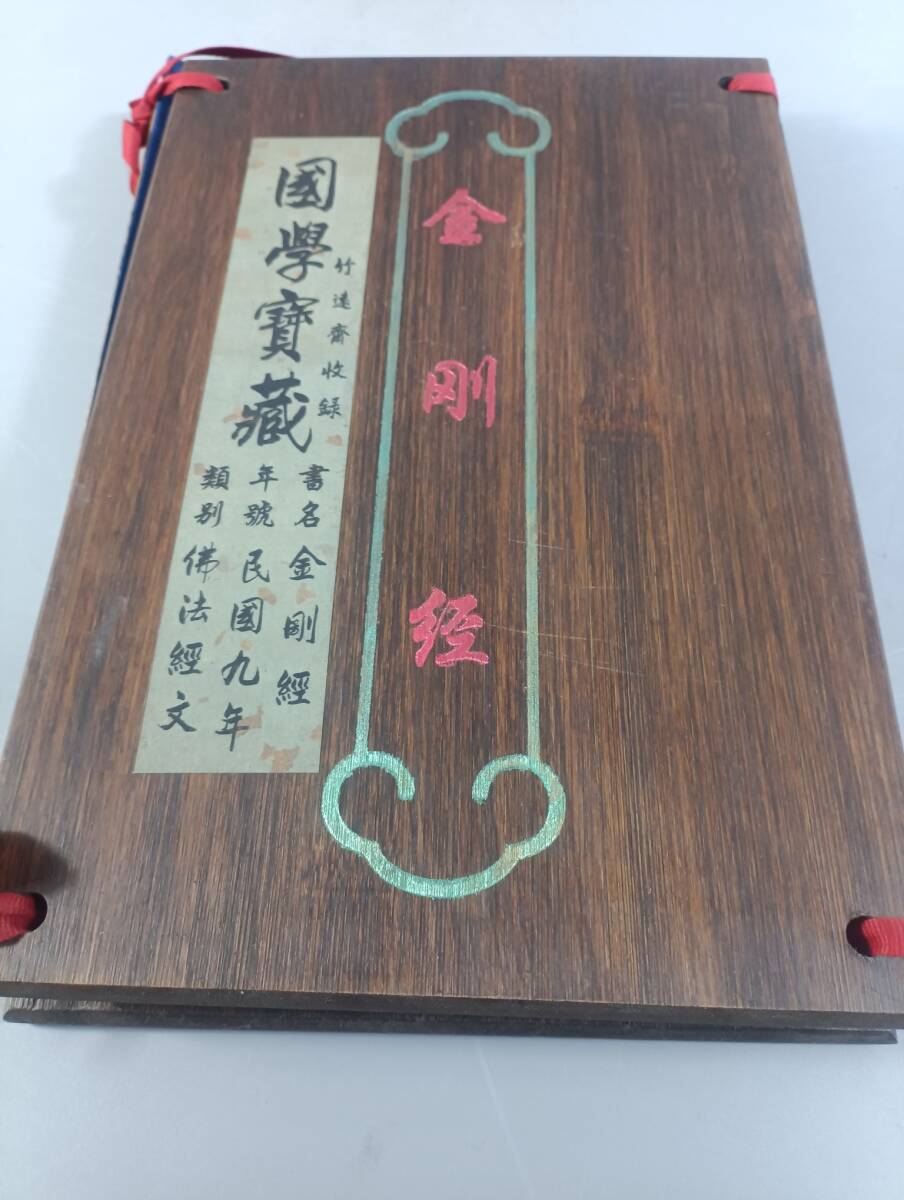 金刚经
國學寶藏
竹遠齋收録
書名 金剛經
年號 民國九年
類别 佛法經文